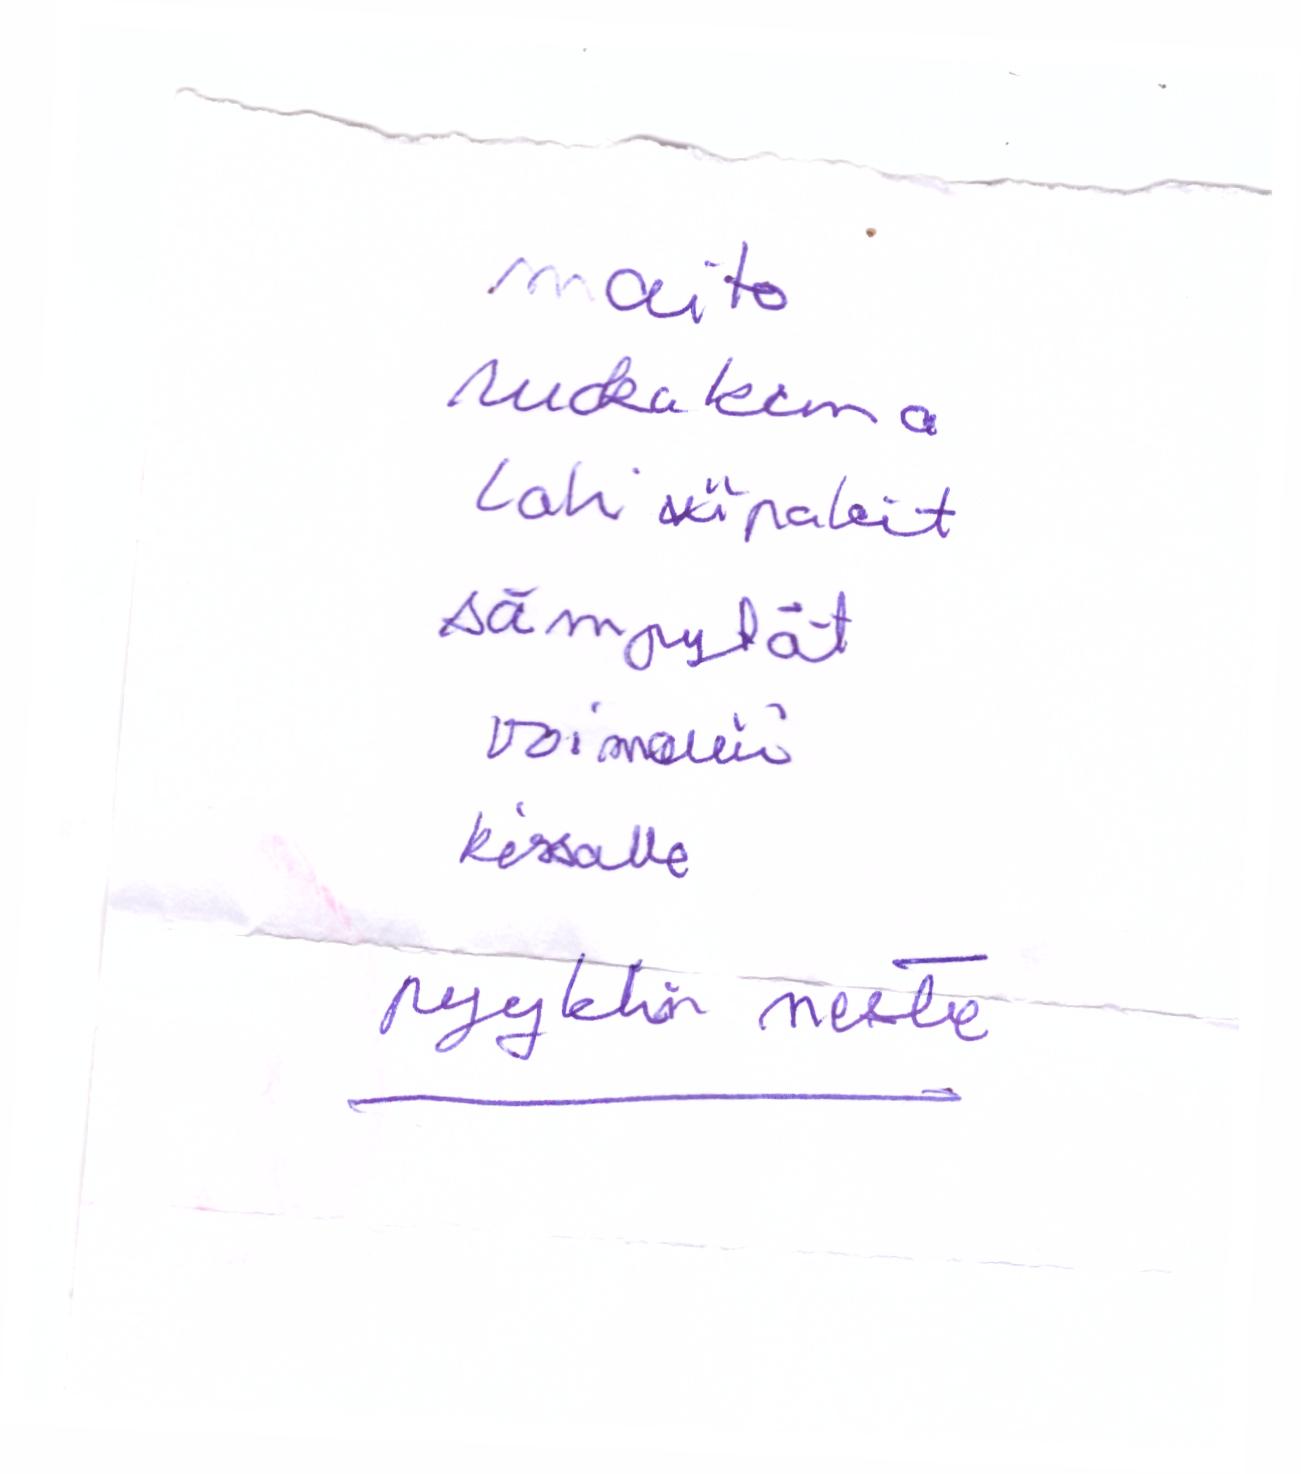 maito
ruokakerma
lohi viipaleit
sämpylät
voimariini
kissalle
pyyklin neste